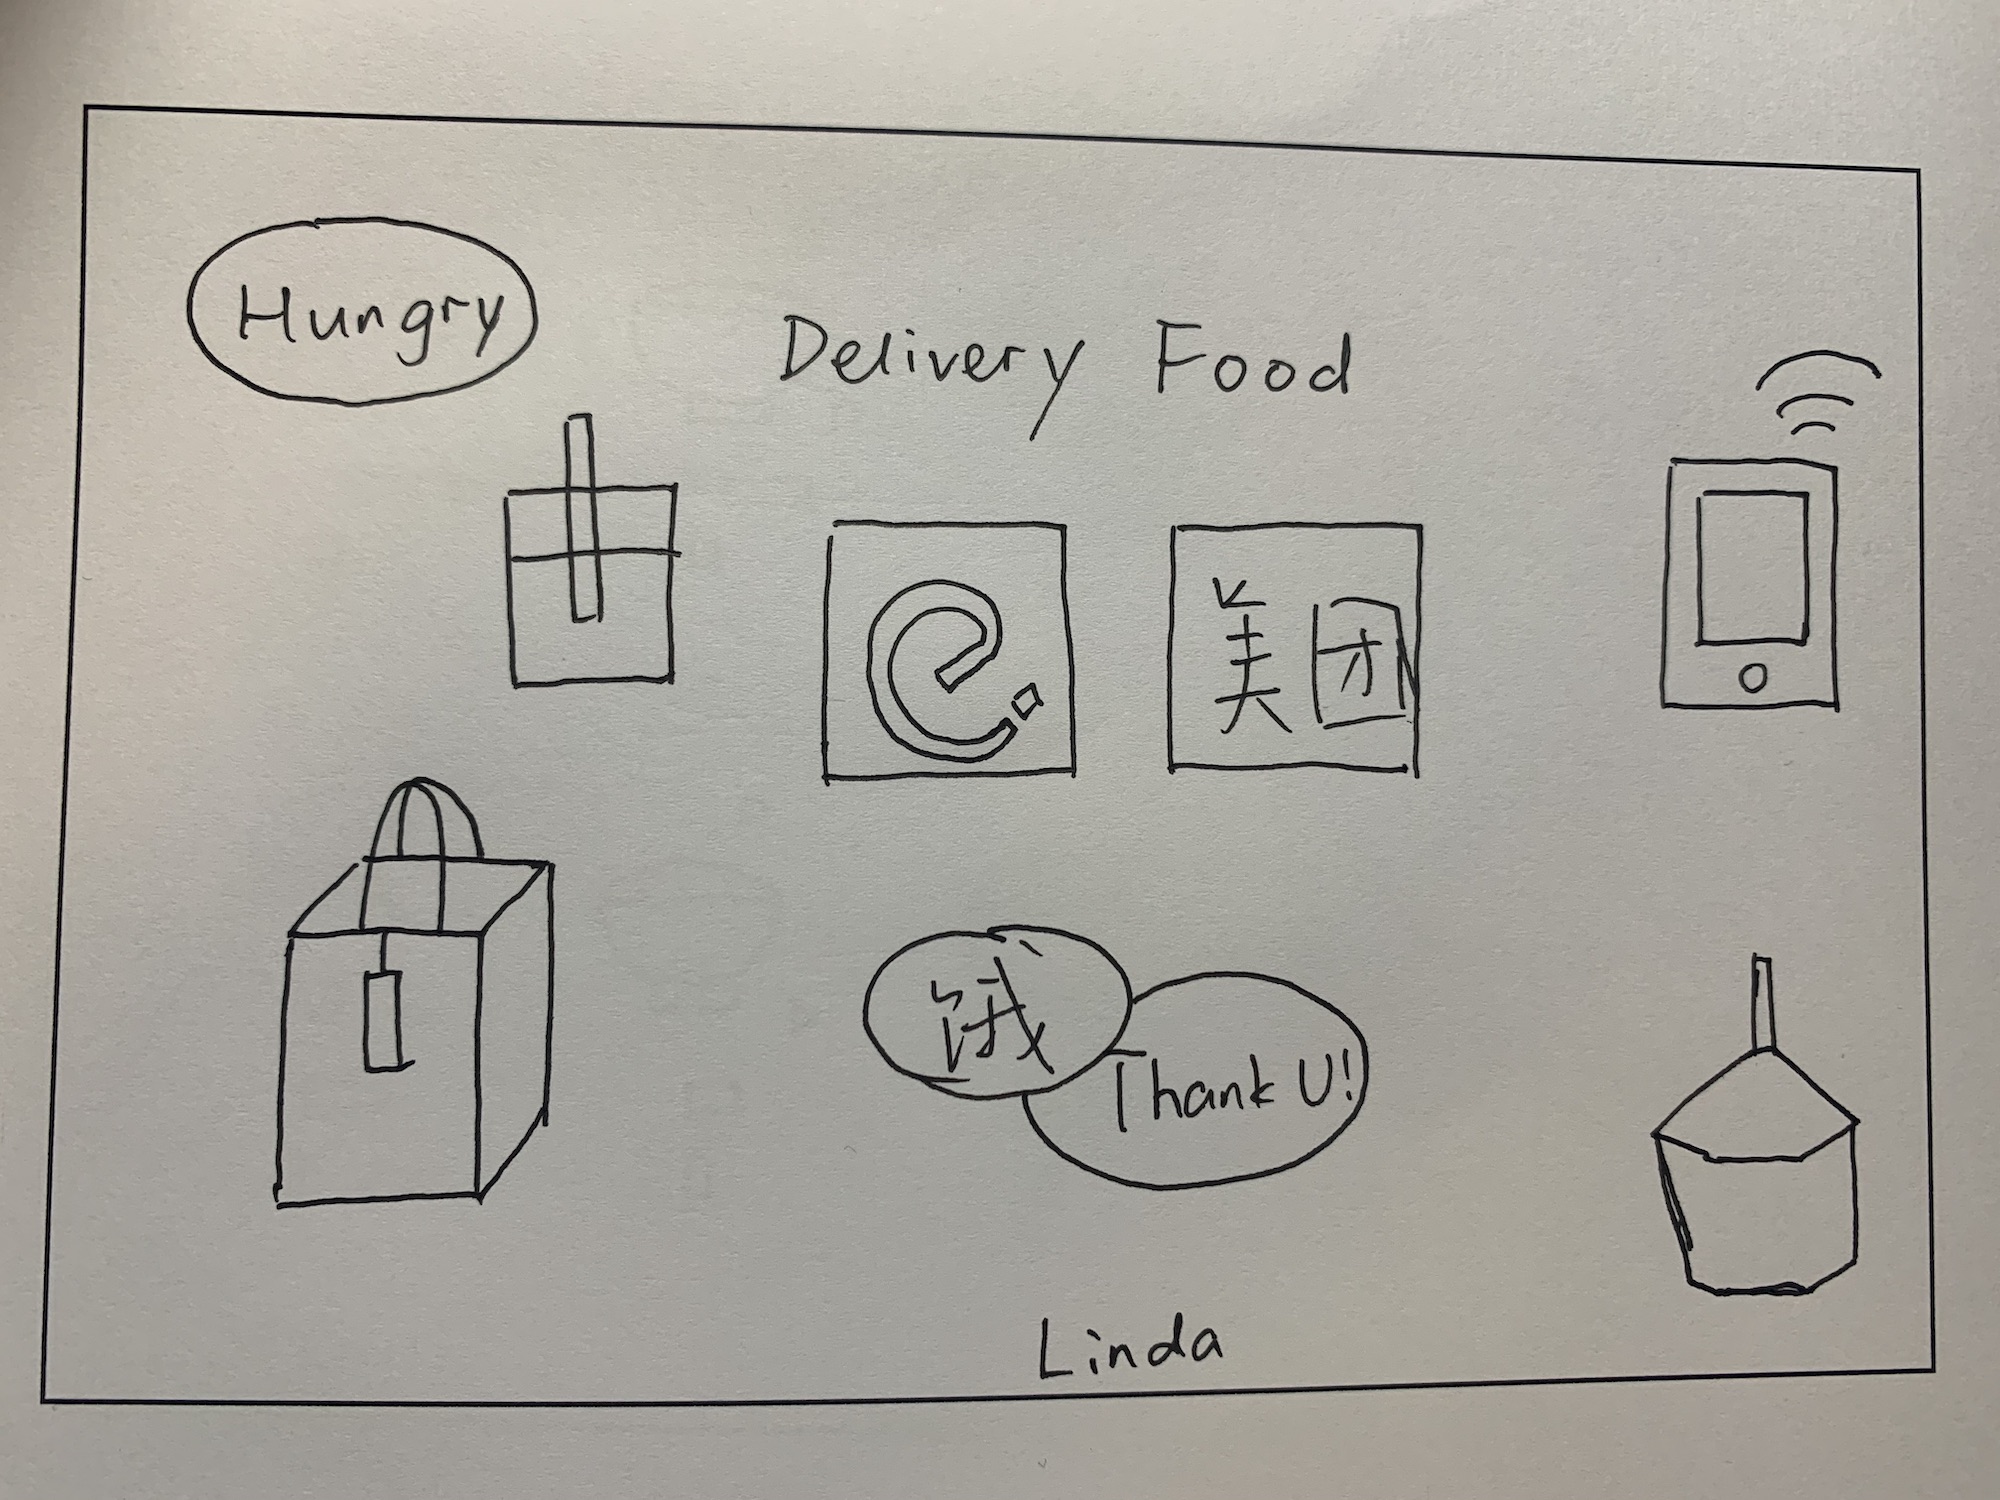 Hungry
Delivery Food
e
美团
饿
Thank U!
Linda